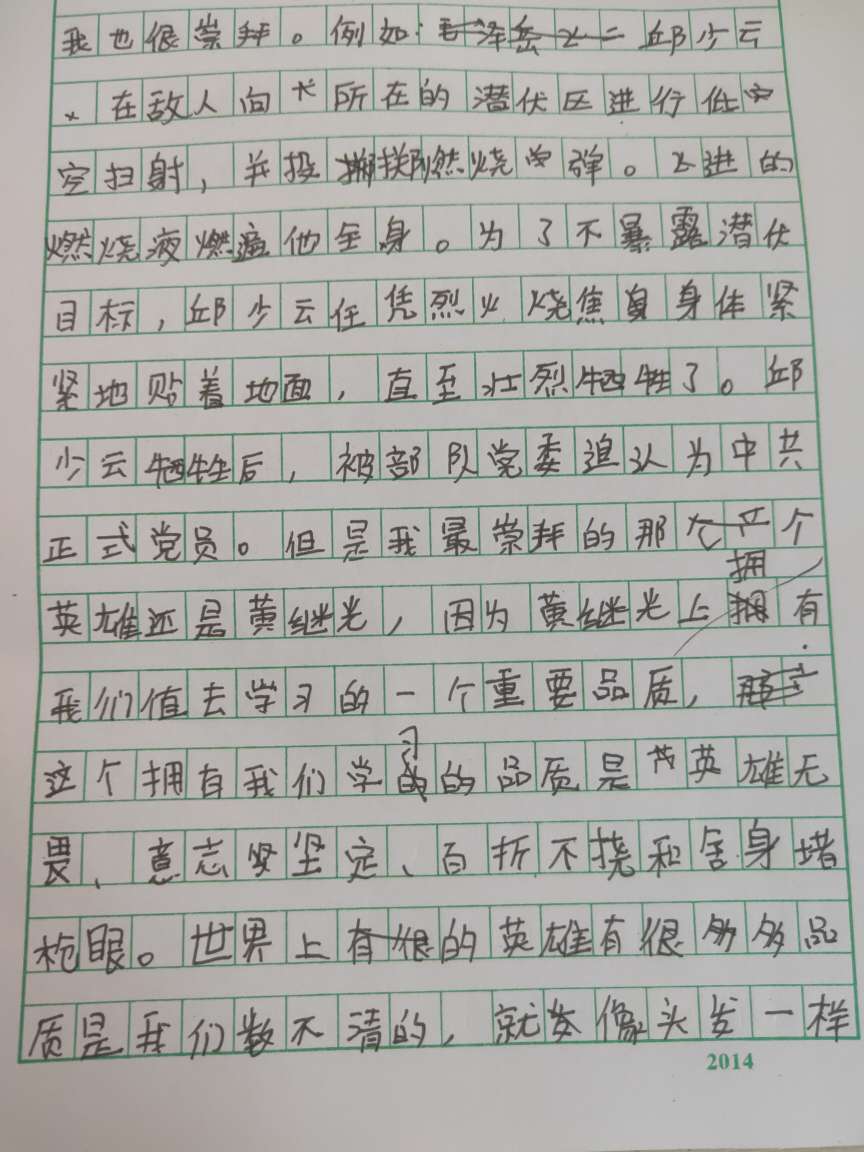 我也很崇拜。例如：邱少云
在敌人向所在的潜伏区进行低
空扫射，并投掷燃烧弹。飞迸的
燃烧液燃遍他全身。为了不暴露潜伏
目标，邱少云任凭烈火烧焦身体紧
紧地贴着地面，直至壮烈牺牲了。邱
少云牺牲后，被部队党委追认为中共
正式党员。但是我最崇拜的那个
英雄还是黄继光，因为黄继光上拥有
我们值去学习的一个重要品质，
这个拥有我们学习的品质是英雄无
畏、意志坚定、百折不挠和舍身堵
枪眼。世界上的英雄有很多多品
质是我们数不清的，就像头发一样
2014